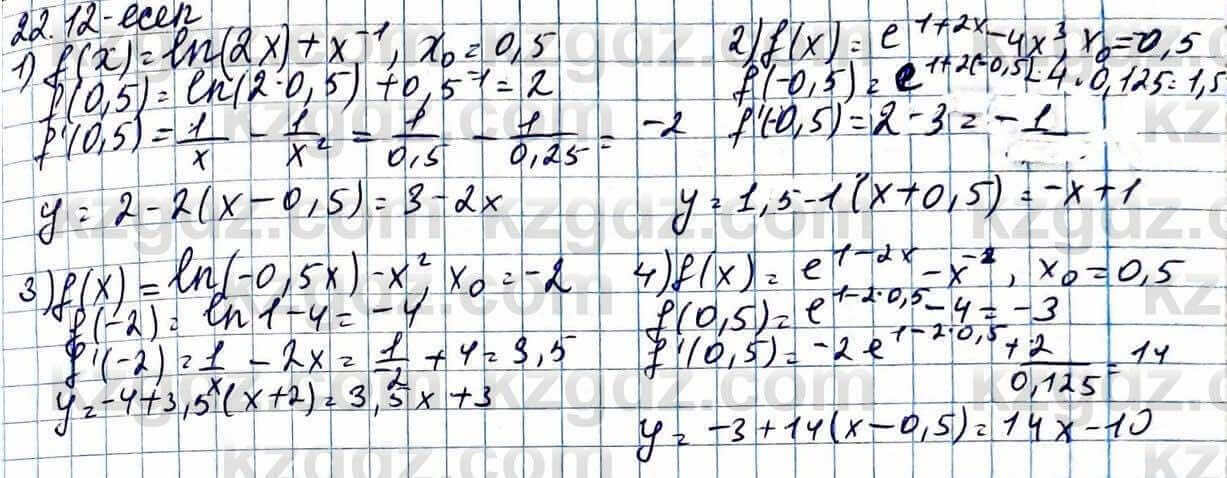 22.12-есеп
1) f(x) = ln(2x) + x⁻¹, x₀ = 0,5
f(0,5) = ln(2·0,5) + 0,5⁻¹ = 2
f'(0,5) = 1/x - 1/x² = 1/0,5 - 1/0,25 = -2
y = 2 - 2(x - 0,5) = 3 - 2x
2) f(x) = e^(1+2x) - 4x³, x₀ = -0,5
f(-0,5) = e^(1+2(-0,5)) - 4·0,125 = 1,5
f'(-0,5) = 2 - 3 = -1
y = 1,5 - 1(x + 0,5) = -x + 1
3) f(x) = ln(-0,5x) - x², x₀ = -2
f(-2) = ln1 - 4 = -4
f'(-2) = 1/x - 2x = 1/2 + 4 = 3,5
y = -4 + 3,5(x + 2) = 3,5x + 3
4) f(x) = e^(1-2x) - x⁻², x₀ = 0,5
f(0,5) = e^(1-2·0,5) - 4 = -3
f'(0,5) = -2e^(1-2·0,5) + 2/0,125 = 14
y = -3 + 14(x - 0,5) = 14x - 10
kzgdz.com